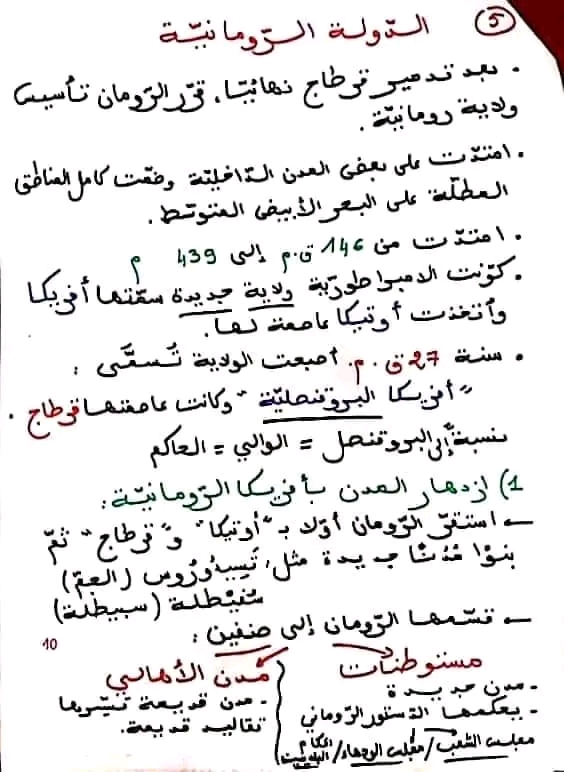 5 الدّولة الرّومانيّة
. بعد تدمير قرطاج نهائيّا، قرّر الرّومان تأسيس
ولاية رومانيّة.
. امتدّت على بعض المدن الدّاخليّة وضمّت كامل المناطق
المطلّة على البحر الأبيض المتوسّط.
. امتدّت من 146 ق.م إلى 439 م
. كوّنت الامبراطوريّة ولاية جديدة سمّتها أفريكا
وٱتّخذت أوتيكا عاصمة لها.
. سنة 27 ق.م. أصبحت الولاية تُسمَّى :
"أفريكا البروقنصليّة" وكانت عاصمتها قرطاج.
نسبة إلى البروقنصل = الوالي = الحاكم
1) ازدهار المدن بأفريكا الرّومانيّة:
← استقرّ الرّومان أوّلا بـ "أوتيكا" و"قرطاج" ثمّ
بنوْا مُدُنًا جديدة مثل: تيسدروس (الجم)
سُفيطلة (سبيطلة)
← قسّمها الرّومان إلى صنفين :
10
مستوطنات
- مدن جديدة
- يحكمها الدّستور الرّوماني
مجلس الشعب/ مجلس الوجهاء/ الحكام البلديين
مدن الأهالي
- مدن قديمة تسيّرها
تقاليد قديمة.